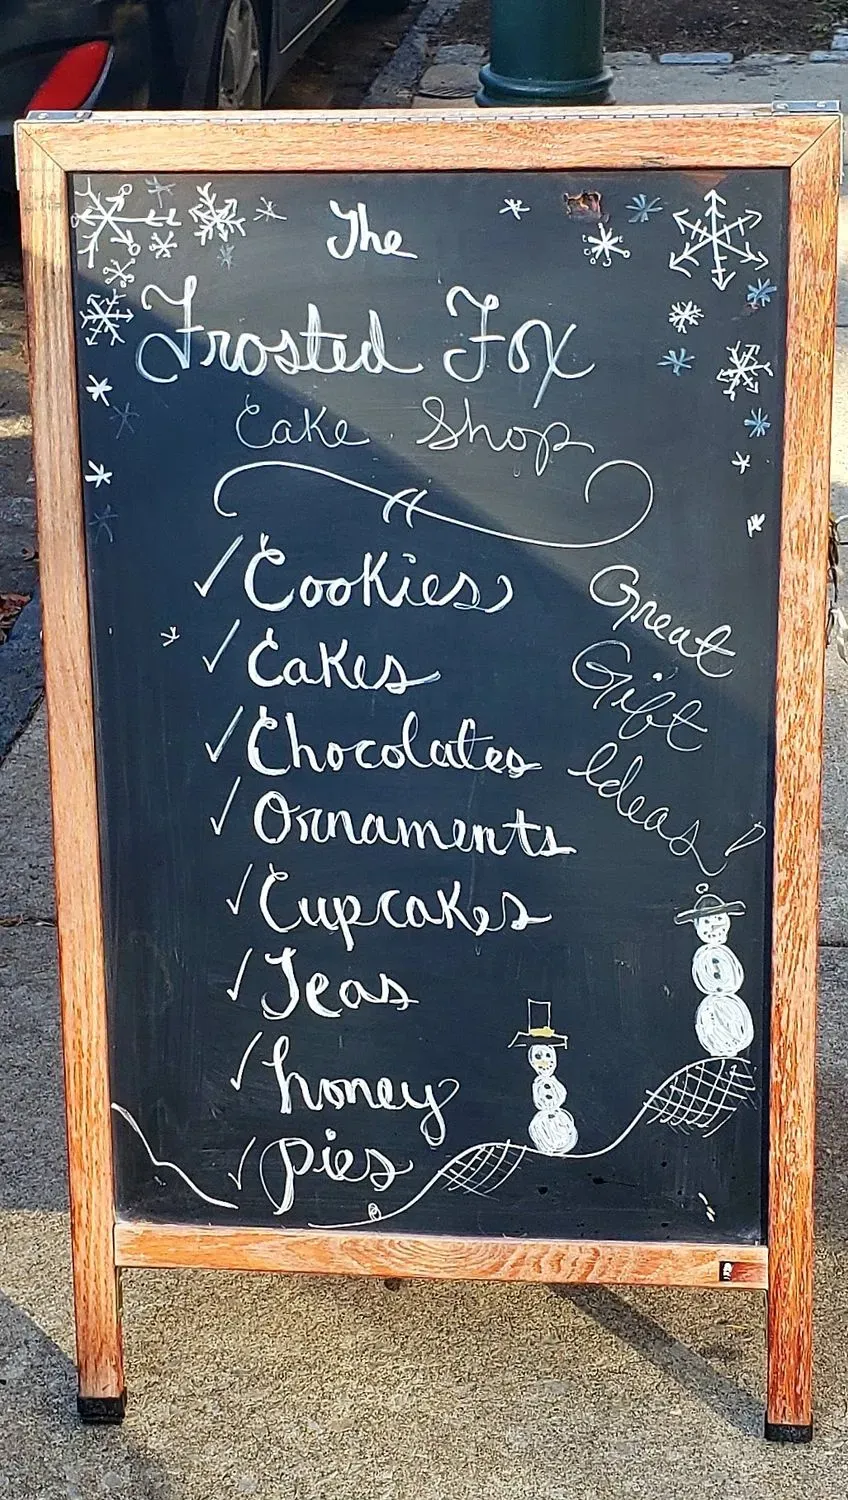 The
Frosted Fox
Cake Shop
✓ Cookies
✓ Cakes
✓ Chocolates
✓ Ornaments
✓ Cupcakes
✓ Teas
✓ honey
✓ pies
Great
Gift
Ideas!